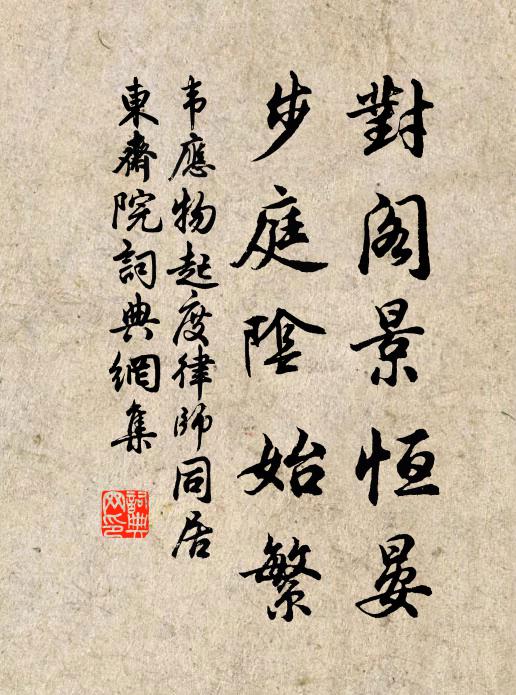 對閣景恒晏
步庭陰始繁
韦應物起度律師同居
東齋院詞典網集
詞典
网印